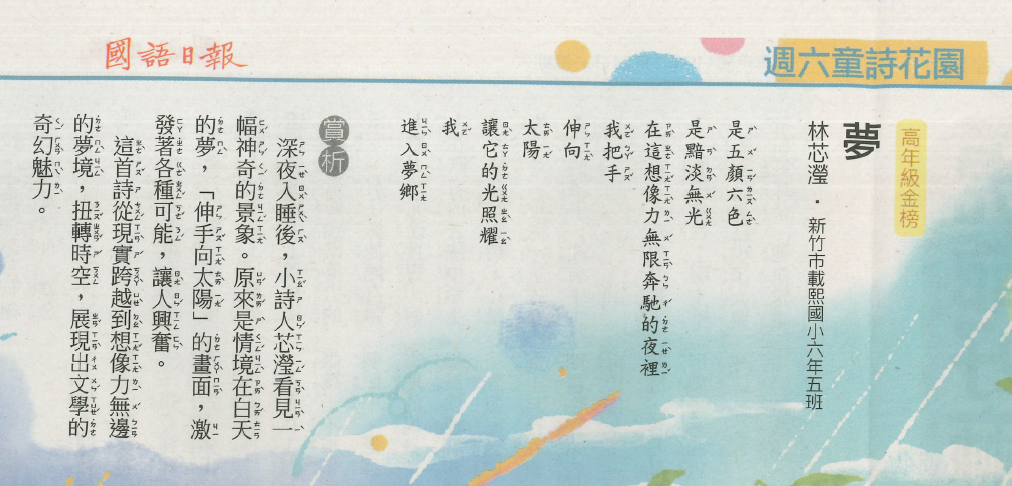 國語日報
週六童詩花園
高年級金榜
夢
林芯瀅 · 新竹市載熙國小六年五班
是五顏六色
是黯淡無光
在這想像力無限奔馳的夜裡
我把手
伸向
太陽
讓它的光照耀
我
進入夢鄉
賞析
深夜入睡後，小詩人芯瀅看見一
幅神奇的景象。原來是情境在白天
的夢，「伸手向太陽」的畫面，激
發著各種可能，讓人興奮。
這首詩從現實跨越到想像力無邊
的夢境，扭轉時空，展現出文學的
奇幻魅力。